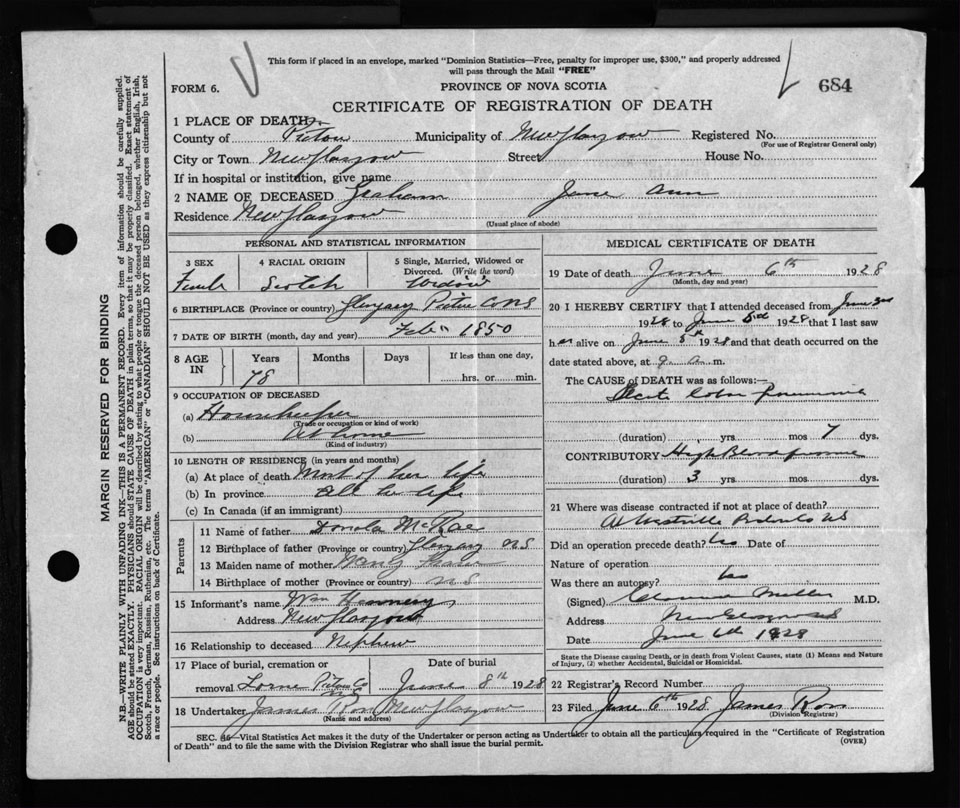 This form if placed in an envelope, marked "Dominion Statistics—Free, penalty for improper use, $300," and properly addressed
will pass through the Mail "FREE"
FORM 6. PROVINCE OF NOVA SCOTIA 684
CERTIFICATE OF REGISTRATION OF DEATH
1 PLACE OF DEATH
County of Pictou Municipality of New Glasgow Registered No.
(For use of Registrar General only)
City or Town New Glasgow Street House No.
If in hospital or institution, give name
2 NAME OF DECEASED Graham Jane Ann
Residence New Glasgow
(Usual place of abode)
PERSONAL AND STATISTICAL INFORMATION
3 SEX 4 RACIAL ORIGIN 5 Single, Married, Widowed or
Divorced. (Write the word)
Female Scotch Widow
6 BIRTHPLACE (Province or country) Pictou Co NS
7 DATE OF BIRTH (month, day and year) Feb 1850
8 AGE IN Years Months Days If less than one day,
78 hrs. or min.
9 OCCUPATION OF DECEASED
(a) Housekeeper
(Trade or occupation or kind of work)
(b) At home
(Kind of industry)
10 LENGTH OF RESIDENCE (in years and months)
(a) At place of death Most of her life
(b) In province All her life
(c) In Canada (if an immigrant)
Parents
11 Name of father McRae
12 Birthplace of father (Province or country) NS
13 Maiden name of mother
14 Birthplace of mother (Province or country) NS
15 Informant's name Wm
Address New Glasgow
16 Relationship to deceased Nephew
17 Place of burial, cremation or Date of burial
removal Lorne Pictou Co NS June 8th 1928
18 Undertaker James Ross New Glasgow
(Name and address)
MEDICAL CERTIFICATE OF DEATH
19 Date of death June 6th 1928
(Month, day and year)
20 I HEREBY CERTIFY that I attended deceased from June
1928 to June 1928 that I last saw
her alive on June 5th 1928 and that death occurred on the
date stated above, at 9 a. m.
The CAUSE of DEATH was as follows:—
lobar pneumonia
(duration) yrs. mos 7 dys.
CONTRIBUTORY High Blood pressure
(duration) 3 yrs. mos. dys.
21 Where was disease contracted if not at place of death?
At Westville Pictou Co NS
Did an operation precede death? No Date of
Nature of operation
Was there an autopsy? No
(Signed) Clarence Miller M.D.
Address New Glasgow NS
Date June 6th 1928
State the Disease causing Death, or in death from Violent Causes, state (1) Means and Nature
of Injury, (2) whether Accidental, Suicidal or Homicidal.
22 Registrar's Record Number
23 Filed June 6th 1928 James Ross
(Division Registrar)
SEC. 46—Vital Statistics Act makes it the duty of the Undertaker or person acting as Undertaker to obtain all the particulars required in the "Certificate of Registration
of Death" and to file the same with the Division Registrar who shall issue the burial permit. (OVER)
MARGIN RESERVED FOR BINDING
N.B.—WRITE PLAINLY WITH UNFADING INK—THIS IS A PERMANENT RECORD. Every item of information should be carefully supplied.
AGE should be stated EXACTLY. PHYSICIANS should STATE CAUSE OF DEATH in plain terms, so that it may be properly classified. Exact statement of
OCCUPATION is very important. RACIAL ORIGIN will be described by stating to what people or tongue the deceased person belonged, whether English, Irish,
Scotch, French, German, Russian, Ruthenian, etc. The terms "AMERICAN" or "CANADIAN" SHOULD NOT BE USED as they express citizenship but not
a race or people. See instructions on back of Certificate.